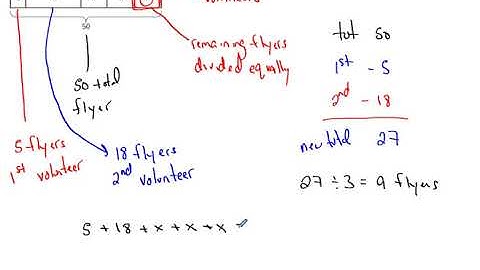 50
50 total
flyer
remaining flyers
divided equally
5 flyers
1st volunteer
18 flyers
2nd volunteer
tot 50
1st - 5
2nd - 18
new total 27
27 ÷ 3 = 9 flyers
5 + 18 + x + x + x =